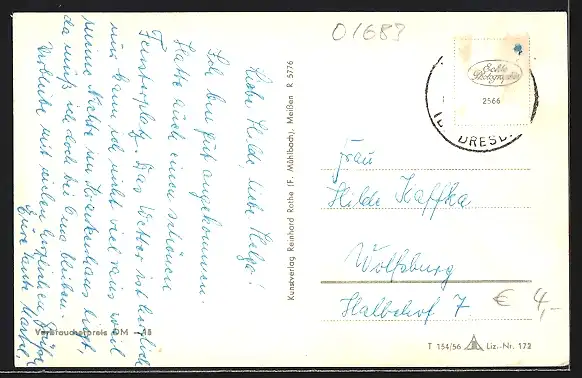 Liebe Hilde, liebe Helga!
Ich bin gut angekommen.
Hatte auch einen schönen
Fensterplatz. Das Wetter ist herrlich
nur kann ich nicht viel aus weil
meine Nichte im Krankenhaus liegt,
da muß ich doch bei Omo bleiben.
Verbleibe mit vielen herzlichen Grüßen
Eure Tante
Verbraucherpreis DM -,15
Kunstverlag Reinhard Rothe (F. Mühlbach), Meißen R 5776
01683
Echte
Photographie
2566
DRESD
Frau
Hilde Kaffka
Wolfsburg
Halbehof 7.
€ 4,-
T 154/56 Liz.-Nr. 172